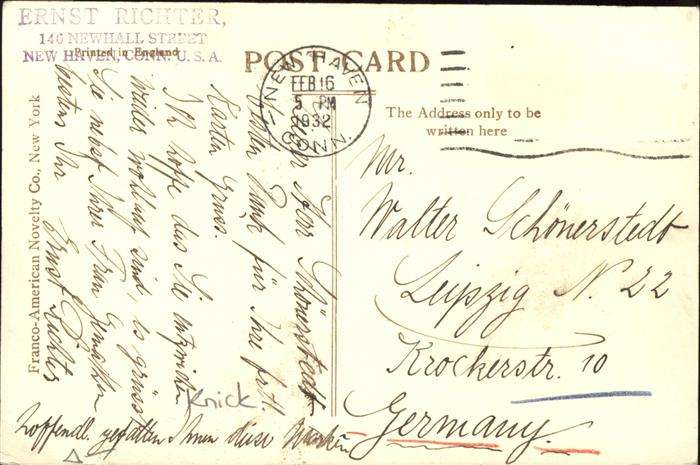 ERNST RICHTER,
146 NEWHALL STREET
NEW HAVEN, CONN. U. S. A.
Printed in England
POST CARD
NEW HAVEN
FEB 16
5 PM
1932
CONN.
The Address only to be
written here
Franco-American Novelty Co., New York
Mr.
Walter Schönerstedt
Leipzig N. 22
Krockerstr. 10
Germany.
Lieber Herr Schönerstedt
Vielen Dank für Ihre frdl.
Karten Gruss.
Ich hoffe das Sie
weiter wohlauf sind, es grüsst
Sie nebst Ihrer Frau Gemahlin
bestens Ihr Ernst Richter
hoffendl. gefallen Ihnen diese Marken
Knick